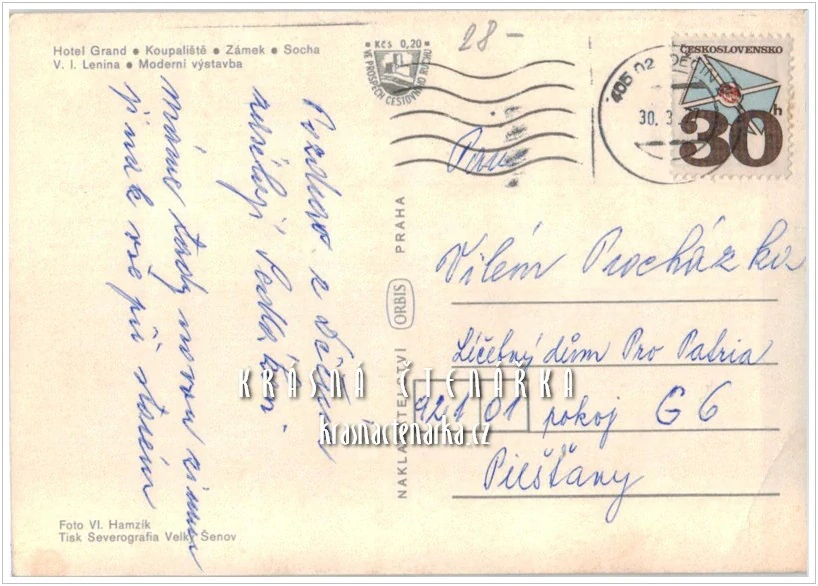 Hotel Grand • Koupaliště • Zámek • Socha
V. I. Lenina • Moderní výstavba
Kčs 0,20
VE PROSPĚCH CESTOVNÍHO RUCHU
28 –
405 02 DĚČÍN
30. 3.
ČESKOSLOVENSKO
30h
Pozdrav z Děčína
zasílají Sedláčkovi.
máme tady novou zimu
jinak vše při starém
Pan
Vilém Procházka
Léčebný dům Pro Patria
921 01 pokoj G6
Piešťany
NAKLADATELSTVÍ ORBIS PRAHA
KRÁSNÁ ČTENÁŘKA
krasnactenarka.cz
Foto Vl. Hamzík
Tisk Severografia Velký Šenov